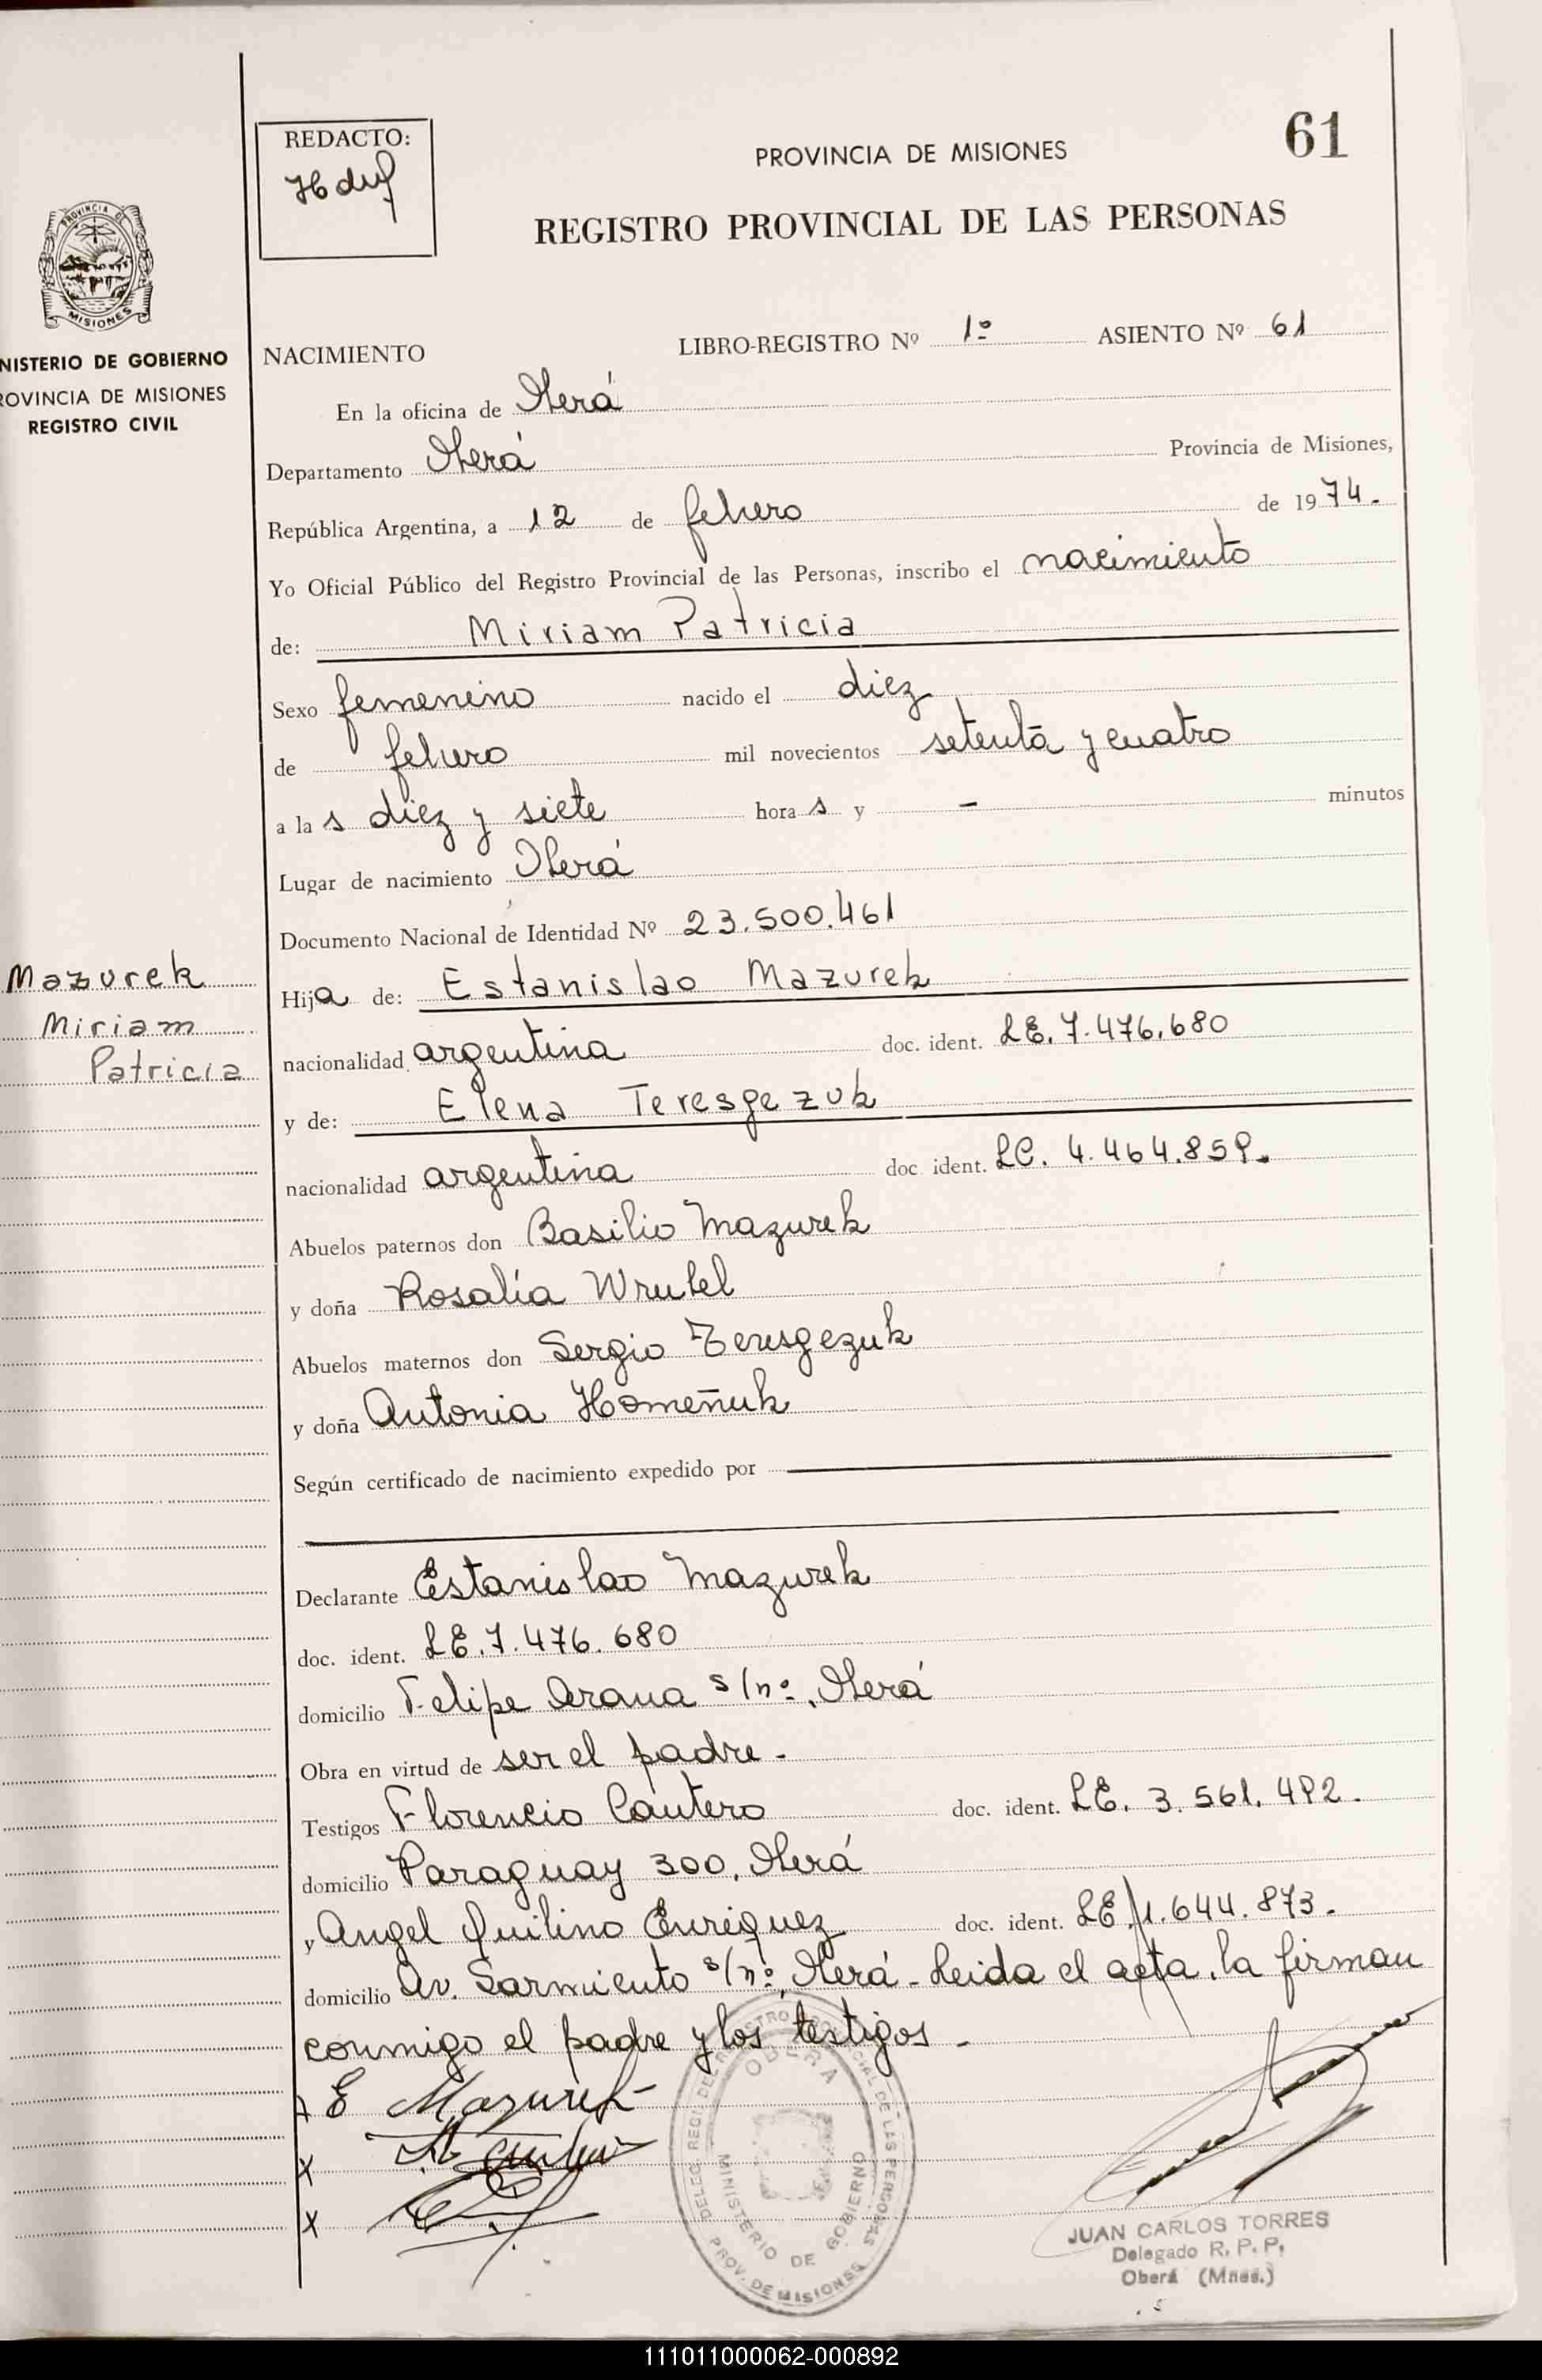 REDACTO:
PROVINCIA DE MISIONES
61
REGISTRO PROVINCIAL DE LAS PERSONAS
PROVINCIA DE
MISIONES
NISTERIO DE GOBIERNO
ROVINCIA DE MISIONES
REGISTRO CIVIL
NACIMIENTO LIBRO-REGISTRO Nº 1º ASIENTO Nº 61
En la oficina de Oberá
Departamento Oberá Provincia de Misiones,
República Argentina, a 12 de febrero de 1974.
Yo Oficial Público del Registro Provincial de las Personas, inscribo el nacimiento
de: Miriam Patricia
Sexo femenino nacido el diez
de febrero mil novecientos setenta y cuatro
a las diez y siete horas y - minutos
Lugar de nacimiento Oberá
Documento Nacional de Identidad Nº 23.500.461
Mazurek
Miriam
Patricia
Hija de: Estanislao Mazurek
nacionalidad argentina doc. ident. LE. 7.476.680
y de: Elena Teresgezuk
nacionalidad argentina doc. ident. LC. 4.464.859.
Abuelos paternos don Basilio Mazurek
y doña Rosalía Wrubel
Abuelos maternos don Sergio Teresgezuk
y doña Antonia Homeñuk
Según certificado de nacimiento expedido por
Declarante Estanislao Mazurek
doc. ident. LE. 7.476.680
domicilio Felipe Arana s/nº, Oberá
Obra en virtud de ser el padre.-
Testigos Florencio Cantero doc. ident. LE. 3.561.492.
domicilio Paraguay 300, Oberá
y Angel Quilino Enriquez doc. ident. LE. 1.644.873.
domicilio Av. Sarmiento s/nº, Oberá - Leida el acta, la firman
conmigo el padre y los testigos -
x E Mazurek
x
x
OBERA
MINISTERIO DE GOBIERNO
PROV. DE MISIONES
JUAN CARLOS TORRES
Delegado R. P. P.
Oberá (Mnes.)
111011000062-000892